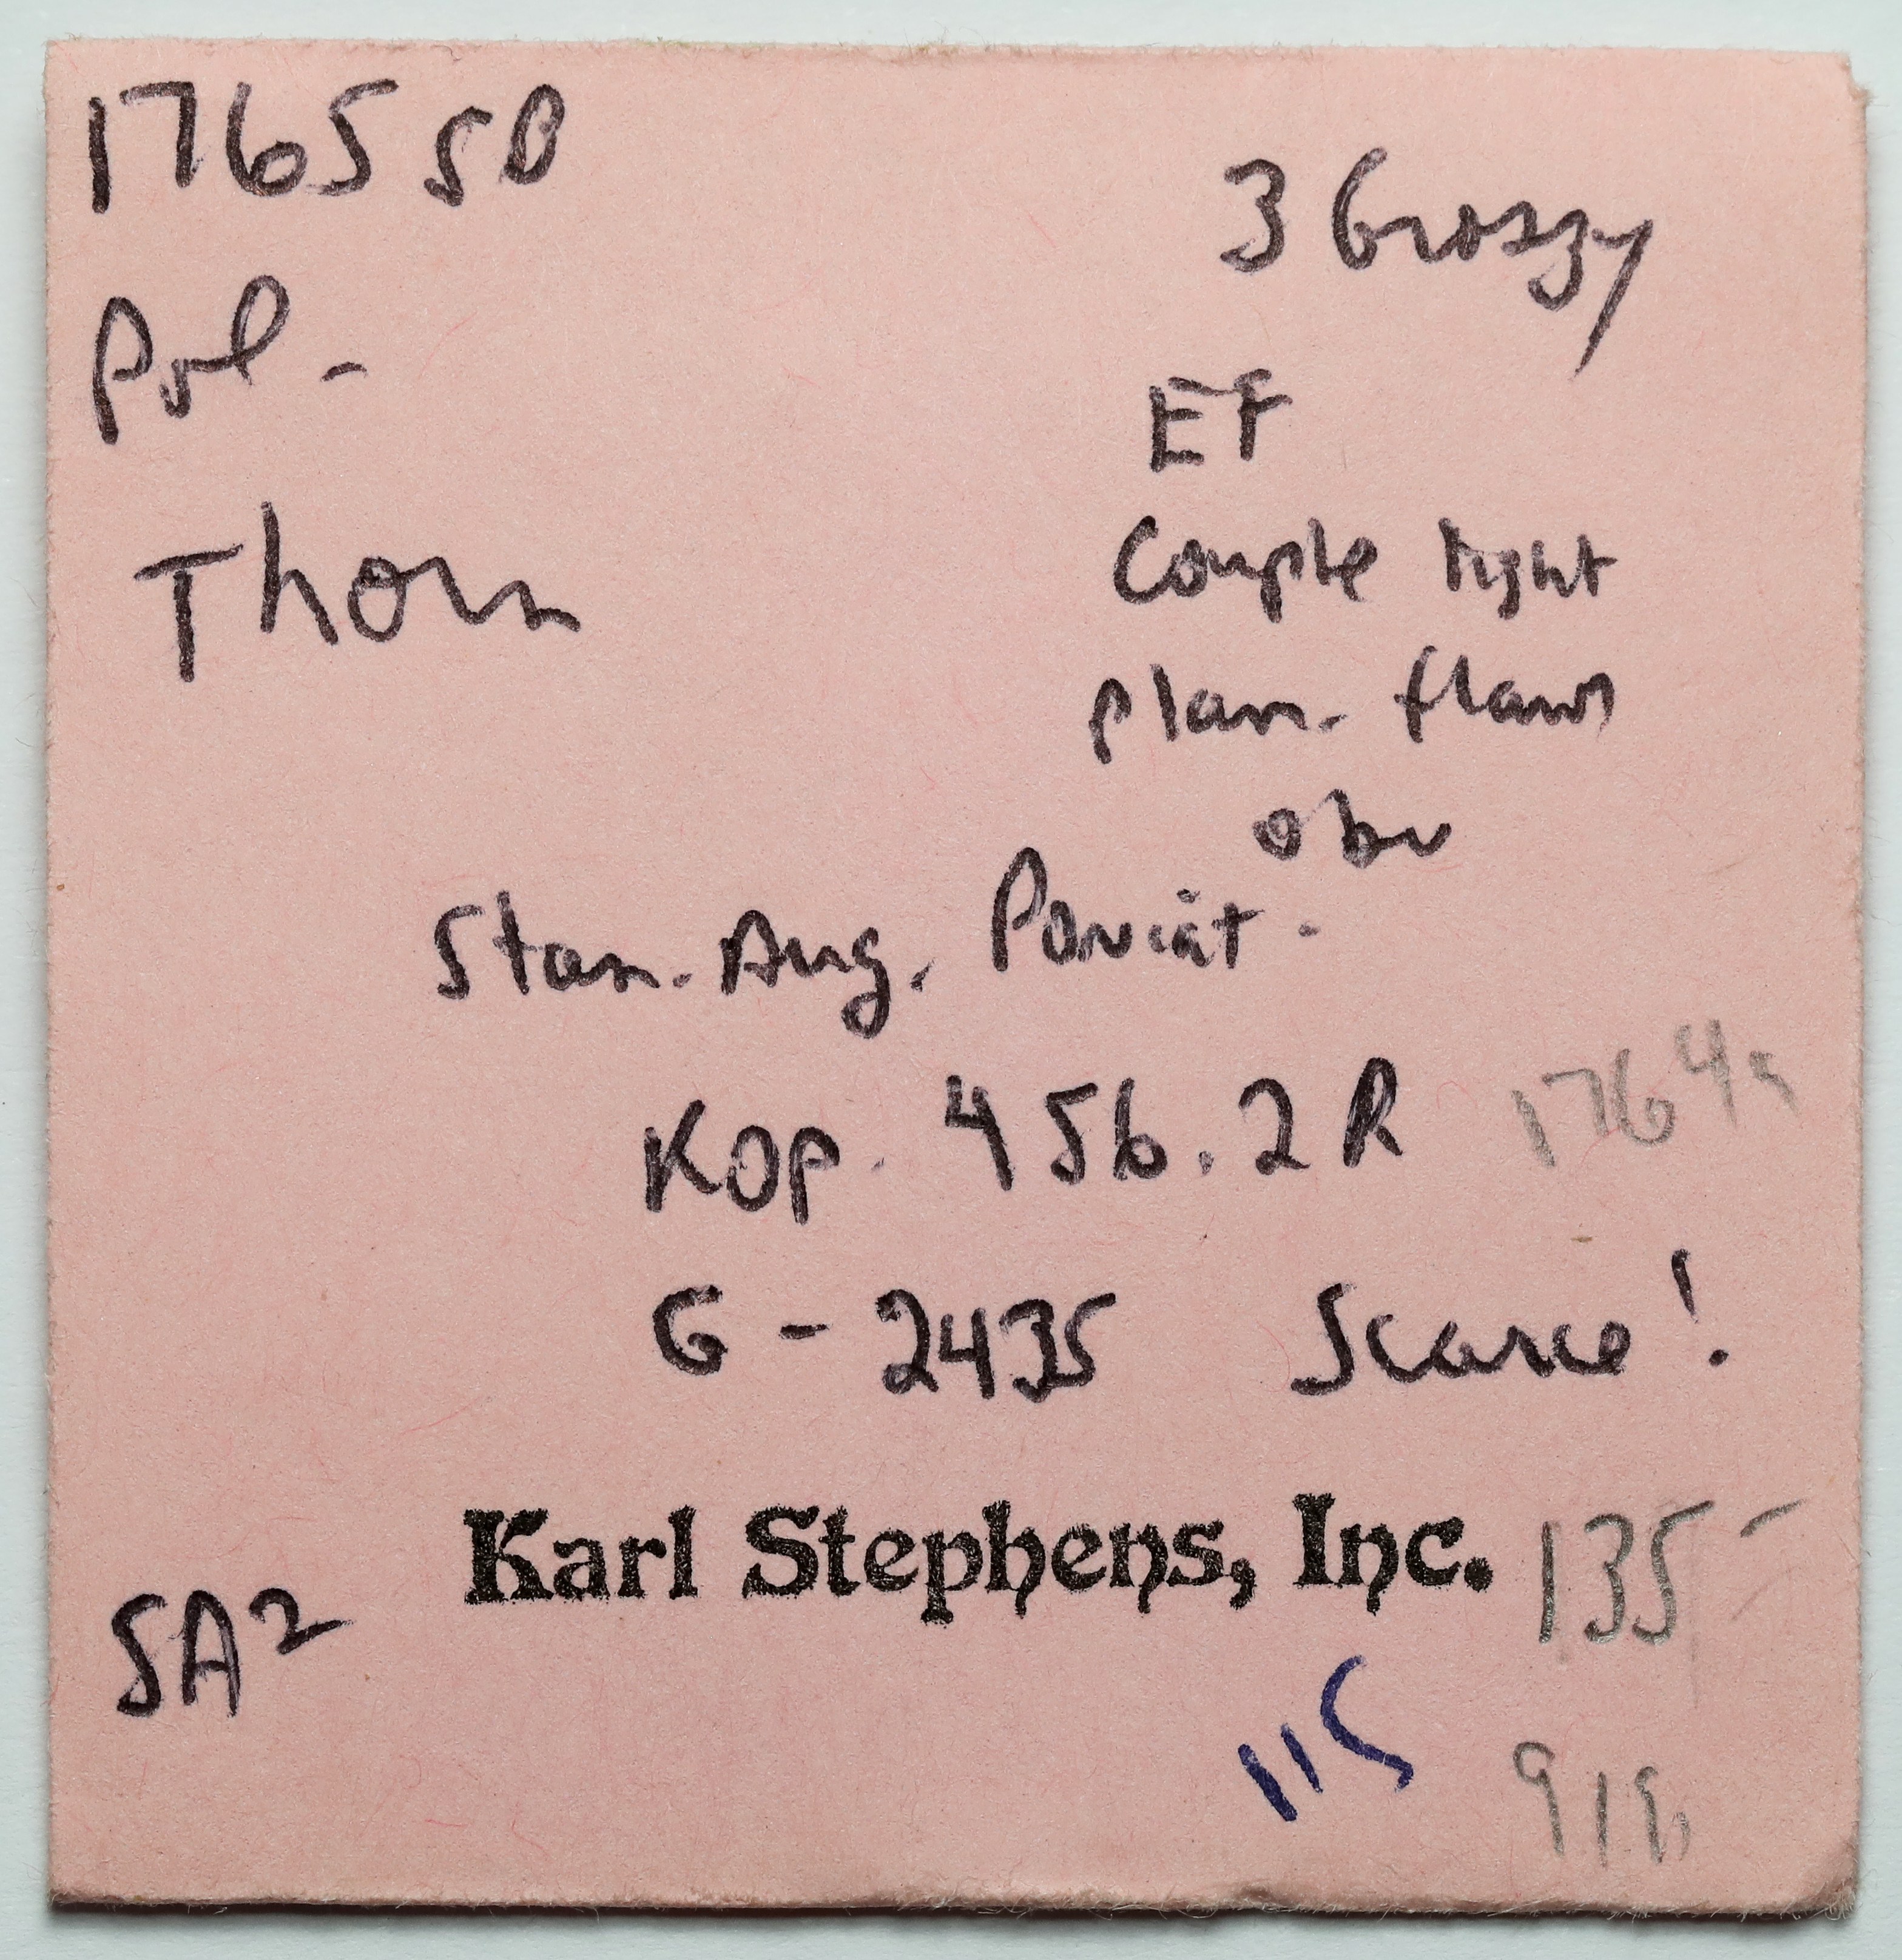 1765 SB
3 Groszy
Pol-
EF
Thorn
Couple light
plan. flaws
obv
Stan. Aug. Poniat.
Kop. 456.2 R
G - 2435 Scarce!
Karl Stephens, Inc. 135-
SA2
115